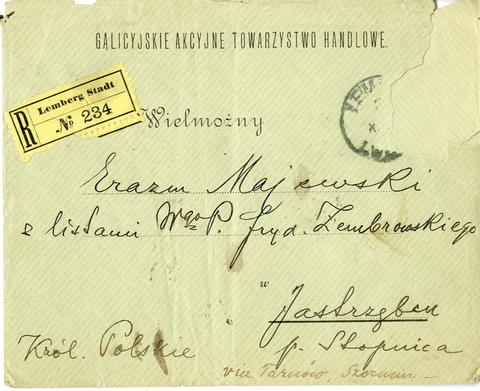 GALICYJSKIE AKCYJNE TOWARZYSTWO HANDLOWE.
R
Lemberg Stadt
№ 234
Wielmożny
Erazm Majewski
z listami Wgo P. Fryd. Zembrowskiego
w
Jastrzębcu
Król. Polskie
p. Stopnica
via Tarnów,